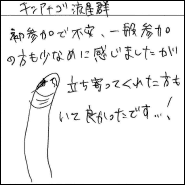 チンアナゴ流産群
初参加で不安、一般参加
の方も少なめに感じましたが
立ち寄ってくれた方も
いて良かったです…!